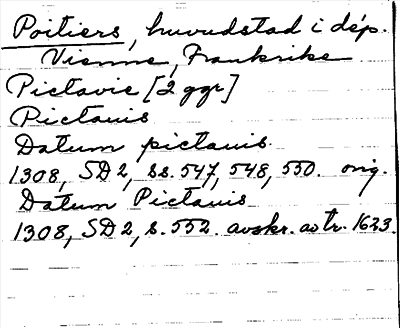 Poitiers, huvudstad i dép.
Vienne, Frankrike
Pictavie [2 ggr]
Pictauis
Datum pictauis
1308, SD2, ss. 547, 548, 550. orig.
Datum Pictauis
1308, SD2, s. 552. avskr. av tr. 1623.